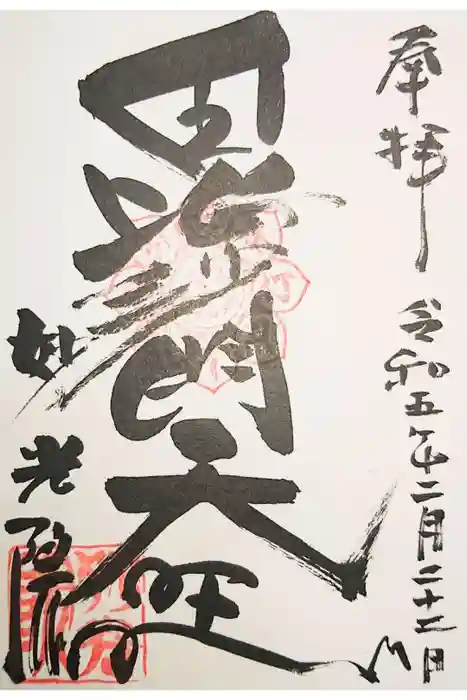 奉拝
令和五年二月二十二日
毘沙門天
妙光院